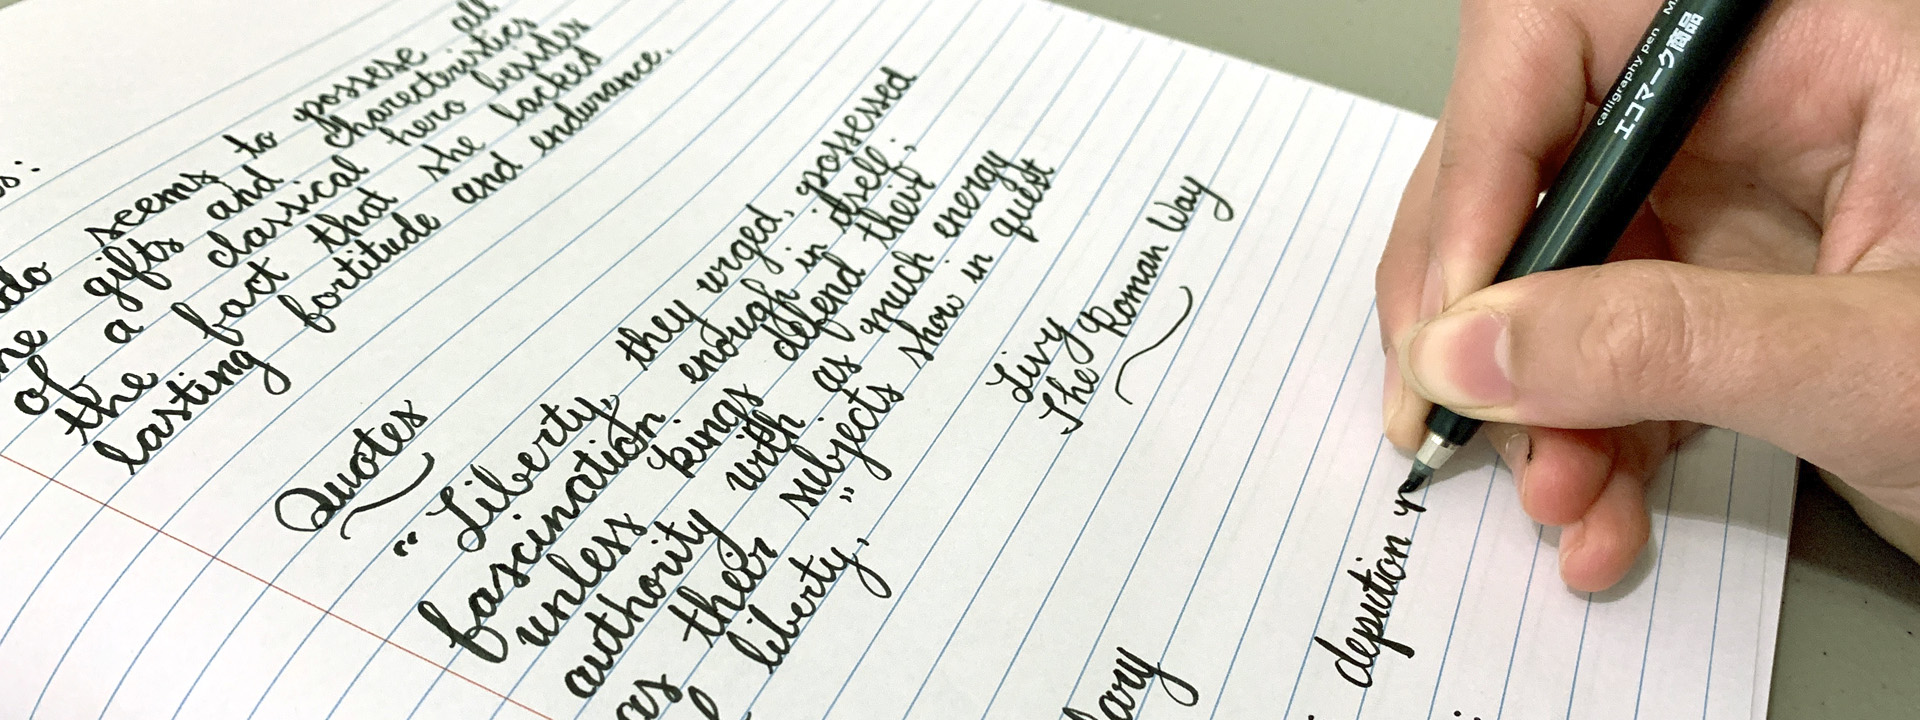 seems to possese all
gifts and charecteristics
of a classical hero besides
the fact that she lacked
lasting fortitude and endurance.
Quotes
"Liberty, they urged, possessed
fascination enough in itself;
unless kings defend their
authority with as much energy
as their subjects show in quest
liberty,"
Livy
The Roman Way
depiction
calligraphy pen
エコマーク商品